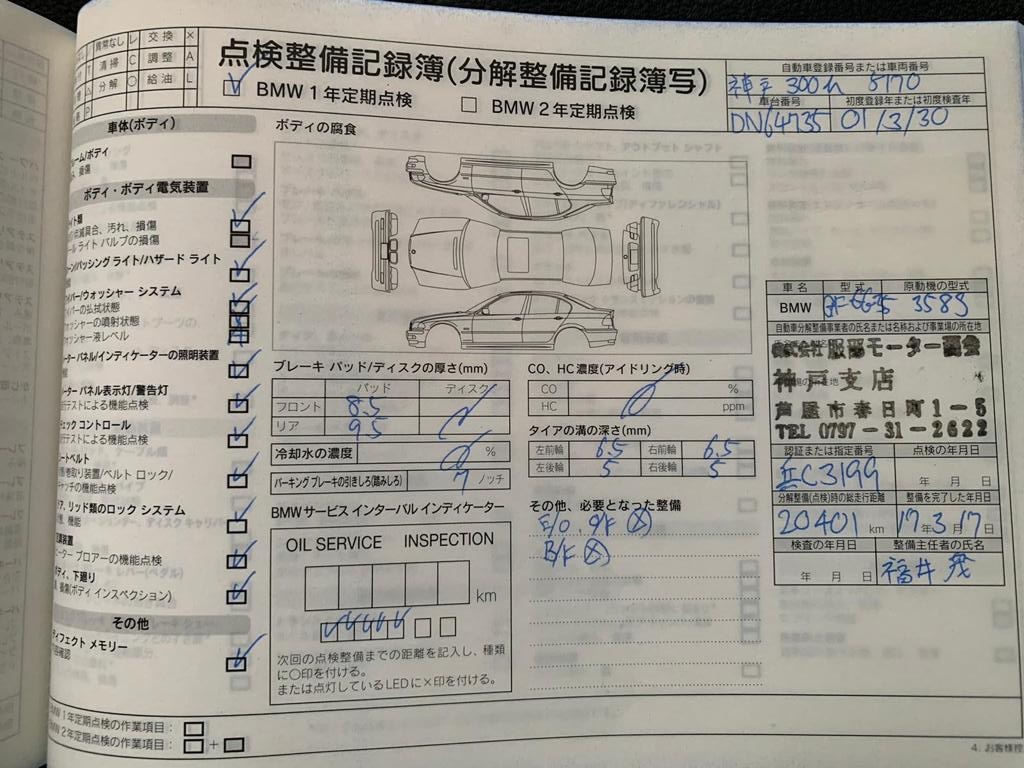 異常なし レ 交換 ×
清掃 C 調整 A
分解 ○ 給油 L
点検整備記録簿(分解整備記録簿写)
BMW 1年定期点検
BMW 2年定期点検
自動車登録番号または車両番号
神戸 300 5170
車台番号 初度登録年または初度検査年
DN64735 01/3/30
車体(ボディ)
ーム/ボディ
損傷
ボディ・ボディ電気装置
イト類
点滅具合、汚れ、損傷
ール ライト バルブの損傷
ーン/パッシング ライト/ハザード ライト
イパー/ウォッシャー システム
イパーの払拭状態
ォッシャーの噴射状態
ォッシャー液レベル
ーター パネル/インディケーターの照明装置
ーター パネル表示灯/警告灯
行テストによる機能点検
ェック コントロール
行テストによる機能点検
ートベルト
巻取り装置/ベルト ロック/
ャンチの機能点検
ア、リッド類のロック システム
機能
装置
ーター ブロアーの機能点検
ディ、下廻り
損傷(ボディ インスペクション)
その他
ディフェクト メモリー
容確認
BMW 1年定期点検の作業項目:
BMW 2年定期点検の作業項目: +
ボディの腐食
ブレーキ パッド/ディスクの厚さ(mm)
パッド ディスク
フロント 8.5
リア 9.5
冷却水の濃度 %
パーキング ブレーキの引きしろ(踏みしろ) 7 ノッチ
CO、HC濃度(アイドリング時)
CO %
HC ppm
タイアの溝の深さ(mm)
左前輪 6.5 右前輪 6.5
左後輪 5 右後輪 5
BMWサービス インターバル インディケーター
OIL SERVICE INSPECTION
km
次回の点検整備までの距離を記入し、種類
に○印を付ける。
または点灯しているLEDに×印を付ける。
その他、必要となった整備
E/O. O/F ⊗
B/F ⊗
車名 型式 原動機の型式
BMW
自動車分解整備事業者の氏名または名称および事業場の所在地
株式会社 服部モーター商会
神戸支店
芦屋市春日町1-5
TEL 0797-31-2622
認証または指定番号 点検の年月日
兵C3199 年 月 日
分解整備(点検)時の総走行距離 整備を完了した年月日
20401 km 17年3月17日
検査の年月日 整備主任者の氏名
年 月 日 福井 茂
4. お客様控